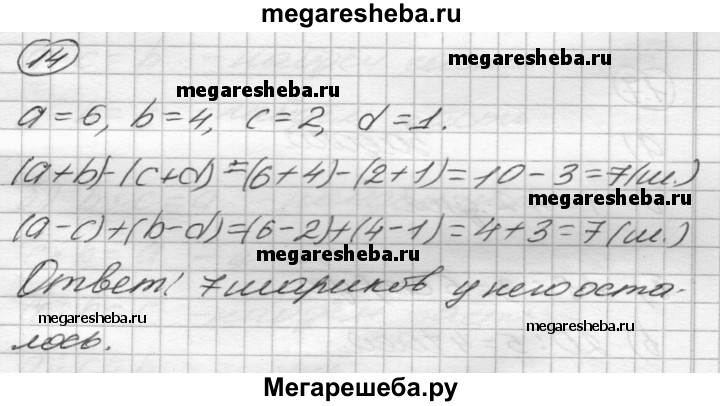 megaresheba.ru
14
megaresheba.ru
megaresheba.ru
a=6, b=4, c=2, d=1.
(a+b)-(c+d)=(6+4)-(2+1)=10-3=7(ш.)
megaresheba.ru
(a-c)+(b-d)=(6-2)+(4-1)=4+3=7(ш.)
megaresheba.ru
Ответ: 7 шариков у него оста-
megaresheba.ru
megaresheba.ru
лось.
Мегарешеба.ру